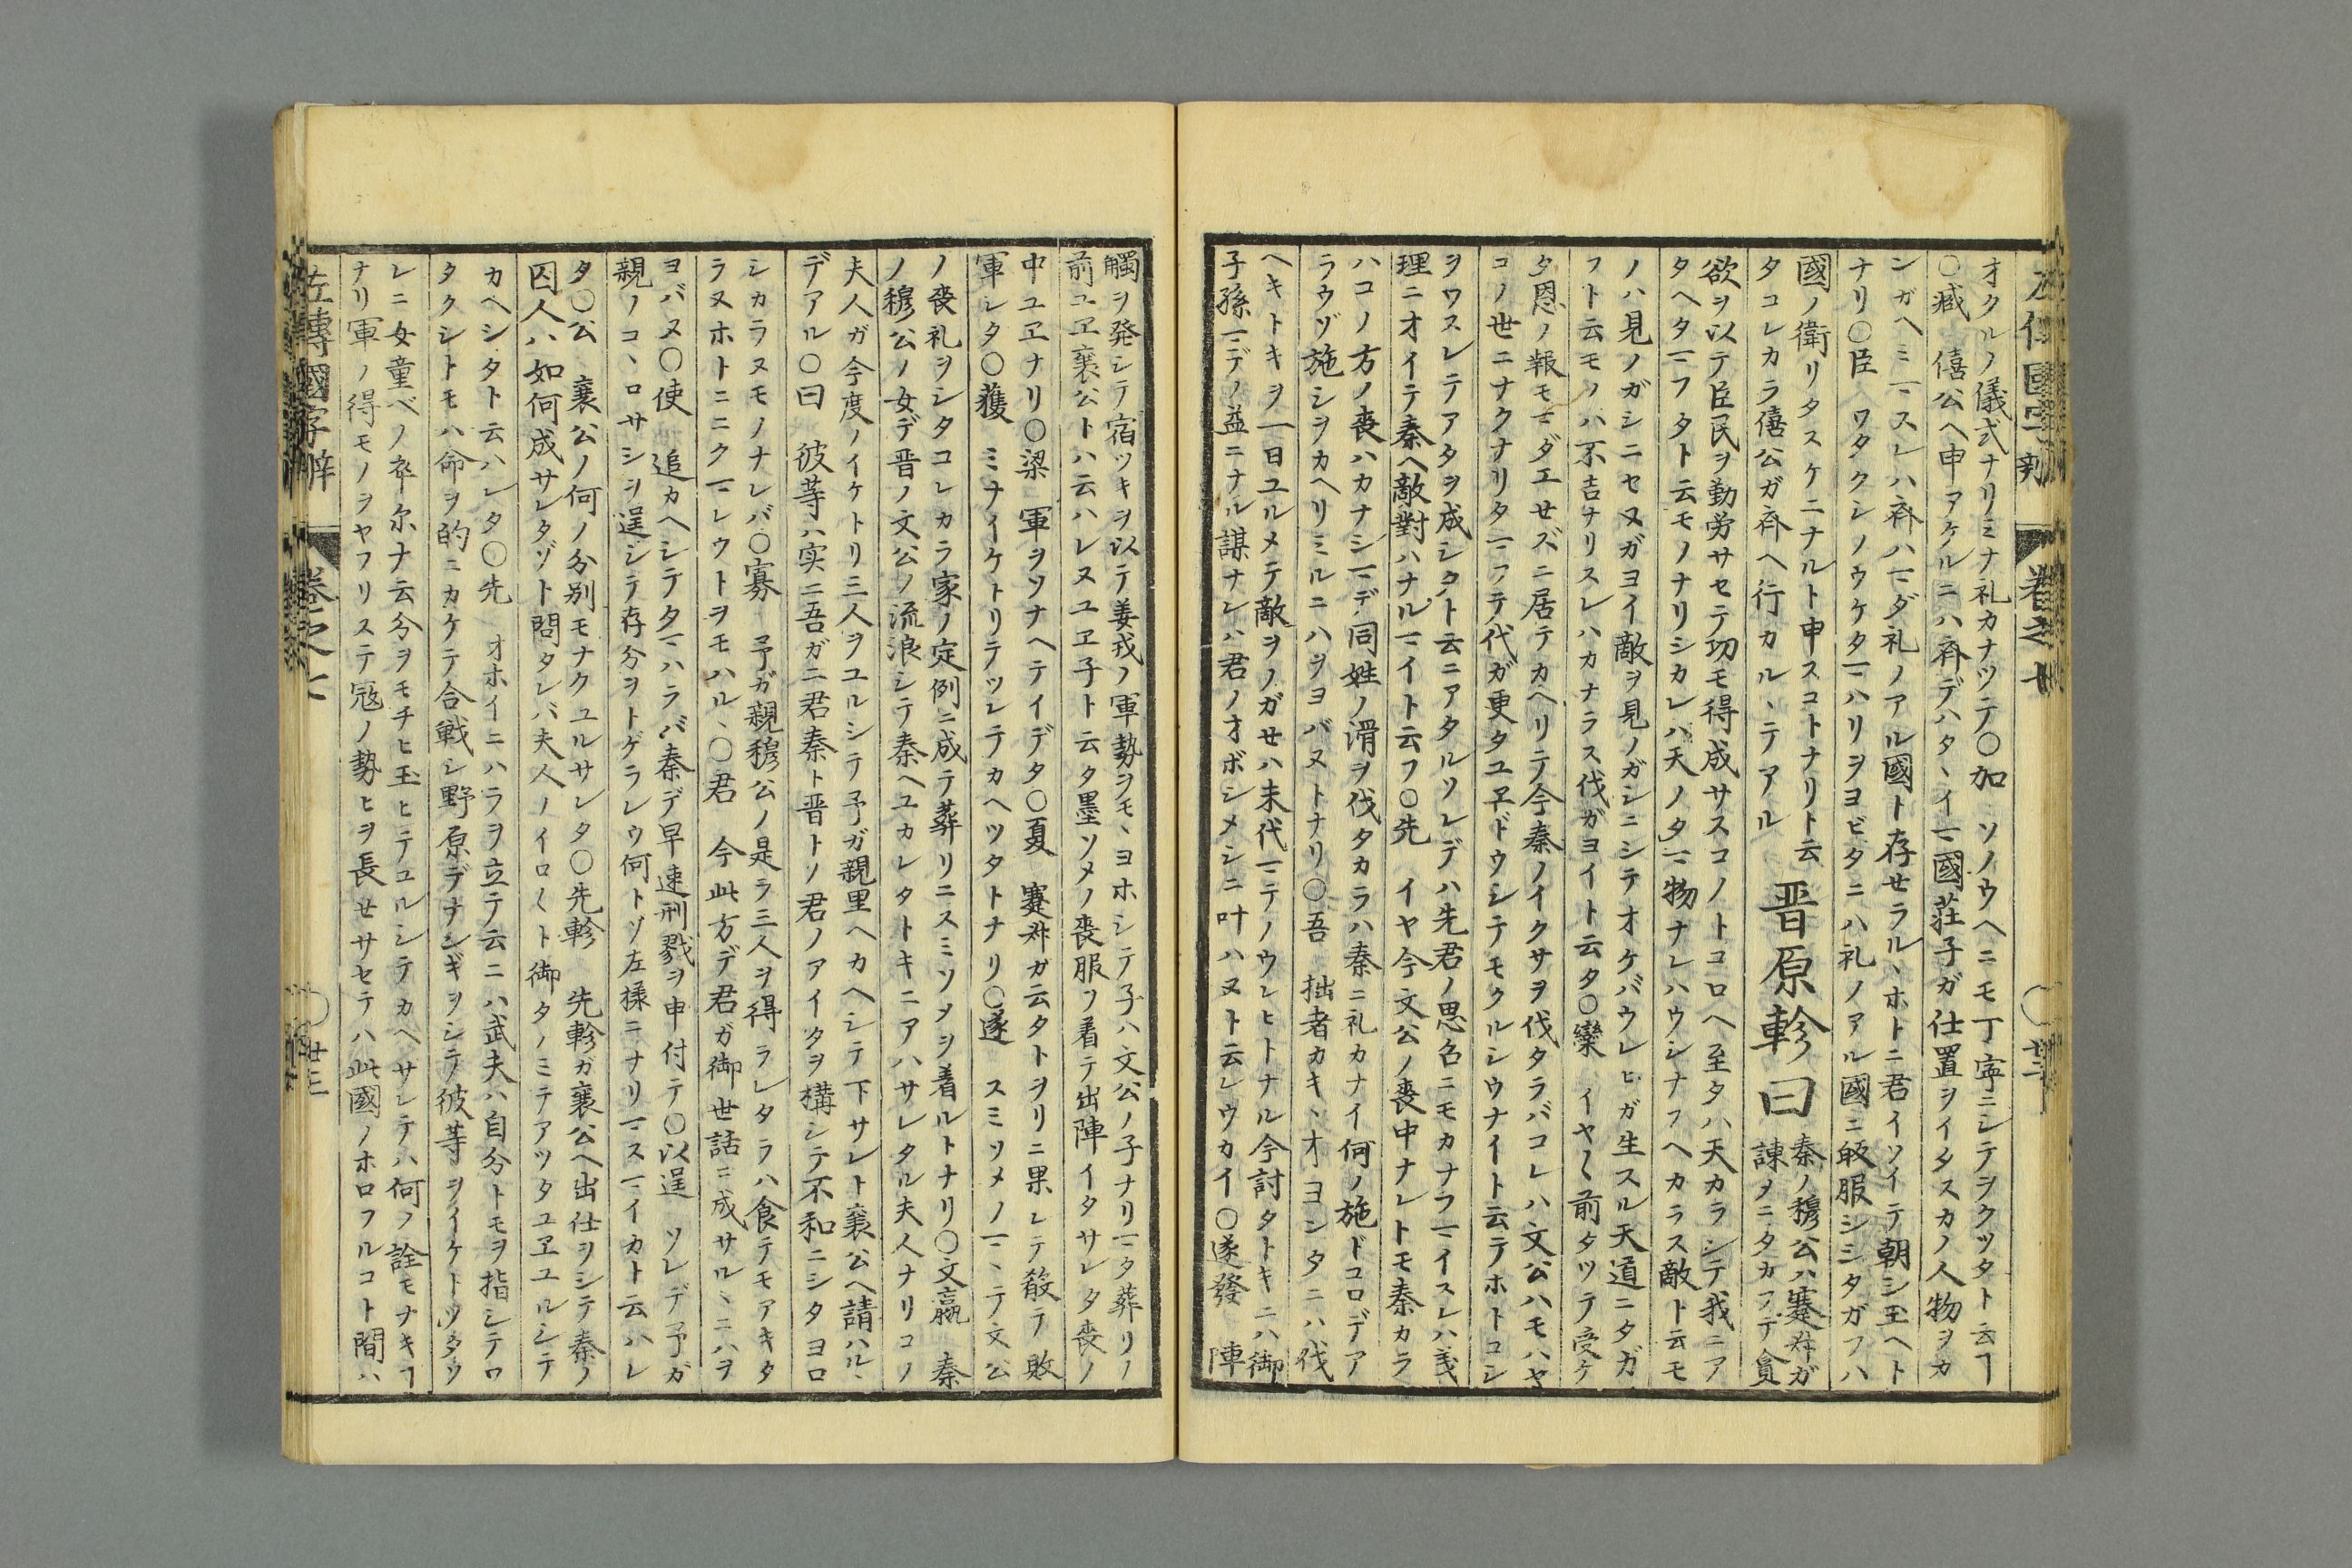 オクルノ儀式ナリミナ礼カナツテ〇加 ソノウヘニモ丁寧ニシテヲクツタト云ヿ
〇臧 僖公ヘ申アケルニハ斉デハタヽイマ國荘子ガ仕置ヲイタスカノ人物ヲカ
ンガヘミマスレハ斉ハマダ礼ノアル國ト存セラルヽホトニ君イソイテ朝シ玉ヘト
ナリ〇臣 ワタクシノウケタマハリヲヨビタニハ礼ノアル國ニ敀服シシタガフハ
國ノ衛リタスケニナルト申スコトナリト云
タコレカラ僖公ガ斉ヘ行カルヽテアル
晋原軫曰
秦ノ穆公ハ蹇叔ガ
諌メニタカフデ貪
欲ヲ以テ臣民ヲ勤労サセテ功モ得成サスコノトコロヘ至タハ天カラシテ我ニア
タヘタマフタト云モノナリシカレバ天ノタマ物ナレハウシナフヘカラス敵ト云モ
ノハ見ノガシニセヌガヨイ敵ヲ見ノガシニシテオケバウレヒガ生スル天道ニタガ
フト云モノハ不吉ナリスレハカナラス伐ガヨイト云タ〇欒 イヤ〱前タツテ受ケ
タ恩ノ報モマダエせズニ居テカヘリテ今秦ノイクサヲ伐タラバコレハ文公ハモハヤ
コノ世ニナクナリタマフテ代ガ更タユヱドウシテモクルシウナイト云テホトコシ
ヲワスレテアタヲ成シタト云ニアタルソレデハ先君ノ思名ニモカナフマイスレハ義
理ニオイテ秦ヘ敵對ハナルマイト云フ〇先 イヤ今文公ノ喪中ナレトモ秦カラ
ハコノ方ノ喪ハカナシマデ同姓ノ滑ヲ伐タカラハ秦ニ礼カナイ何ノ施ドコロデア
ラウゾ施シヲカヘリミルニハヲヨバヌトナリ〇吾 拙者カキヽオヨンタニハ伐
ヘキトキヲ一日ユルメテ敵ヲノガせハ末代マテノウレヒトナル今討タトキニハ御
子孫マデノ益ニナル謀ナレハ君ノオボシメシニ叶ハヌト云レウカイ〇遂發 陣
觸ヲ発シテ宿ツキヲ以テ姜戎ノ軍勢ヲモヽヨホシテ子ハ文公ノ子ナリマタ葬リノ
前ユヱ襄公トハ云ハレヌユヱ子ト云タ墨ソメノ喪服ヲ着テ出陣イタサレタ喪ノ
中ユヱナリ〇梁 軍ヲツナヘテイデタ〇夏 蹇叔ガ云タトヲリニ果レテ殽テ敗
軍シタ〇獲 ミナイケトリテツレテカヘツタトナリ〇遂 スミソメノマヽテ文公
ノ喪礼ヲシタコレカラ家ノ定例ニ成テ葬リニスミソメヲ着ルトナリ〇文嬴 秦
ノ穆公ノ女デ晋ノ文公ノ流浪シテ秦ヘユカレタトキニアハサレタル夫人ナリコノ
夫人ガ今度ノイケトリ三人ヲユルシテ予ガ親里ヘカヘシテ下サレト襄公ヘ請ハルヽ
デアル〇曰 彼等ハ実ニ吾ガ二君秦ト晋トノ君ノアイタヲ構シテ不和ニシタヨロ
シカラヌモノナレバ〇寡 予ガ親穆公ノ是ラ三人ヲ得ラレタラハ食テモアキタ
ラヌホトニニクマレウトヲモハルヽ〇君 今此方デ君ガ御世話ニ成サルヽニハヲ
ヨバヌ〇使 追カヘシテタマハラバ秦デ早速刑戮ヲ申付テ〇以逞 ソレデ予ガ
親ノコヽロサシヲ逞ジテ存分ヲトゲラレウ何トゾ左様ニナリマスマイカト云ハレ
タ〇公 襄公ノ何ノ分別モナクユルサレタ〇先軫 先軫ガ襄公ヘ出仕ヲシテ秦ノ
囚人ハ如何成サレタゾト問タレバ夫人ノイロ〱ト御タノミテアツタユヱユルシテ
カヘシタト云ハレタ〇先 オホイニハラヲ立テ云ニハ武夫ハ自分トモヲ指シテロ
タクシトモハ命ヲ的ニカケテ合戦シ野原デナンギヲシテ彼等ヲイケトツタツ
レニ女童ベノ卒尓ナ云分ヲモチヒ玉ヒテユルシテカヘサレテハ何ノ詮モナキヿ
ナリ軍ノ得モノヲヤフリステ冦ノ勢ヒヲ長せサセテハ此國ノホロフルコト間ハ
左傳國字辨 巻之七 〇 廿三